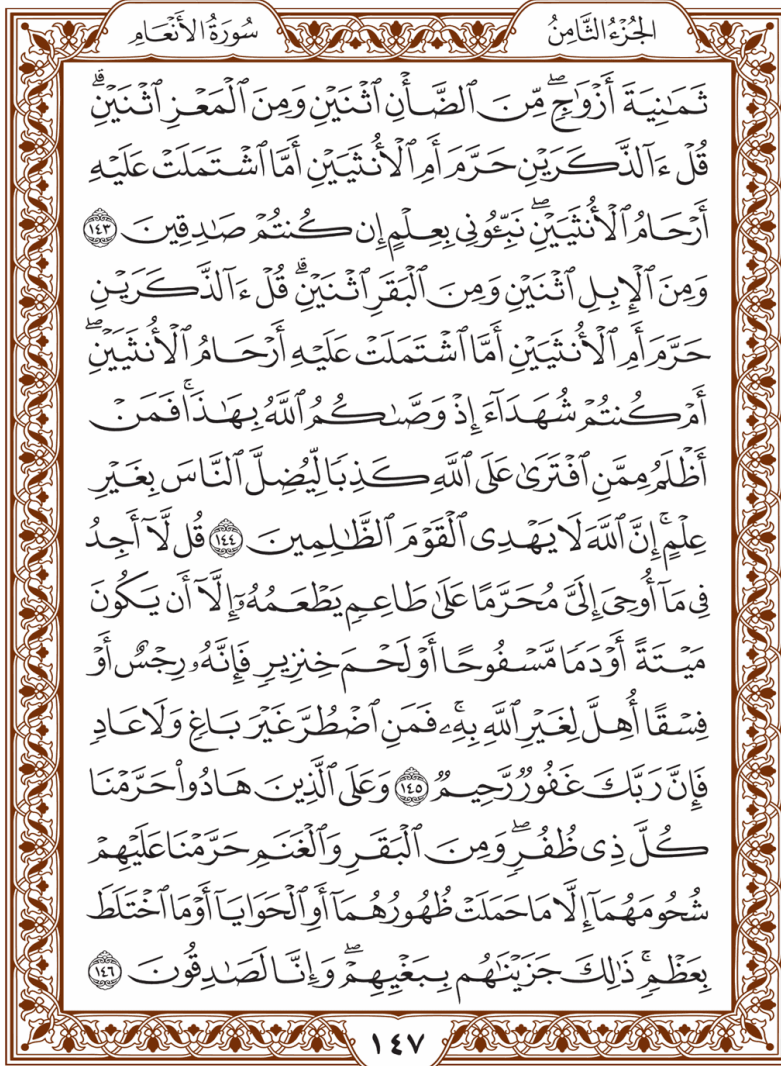 الجُزْءُ الثَّامِنُ
سُورَةُ الأَنْعَام
ثَمَٰنِيَةَ أَزْوَٰجٍۖ مِّنَ ٱلضَّأْنِ ٱثْنَيْنِ وَمِنَ ٱلْمَعْزِ ٱثْنَيْنِۗ
قُلْ ءَآلذَّكَرَيْنِ حَرَّمَ أَمِ ٱلْأُنثَيَيْنِ أَمَّا ٱشْتَمَلَتْ عَلَيْهِ
أَرْحَامُ ٱلْأُنثَيَيْنِۖ نَبِّـُٔونِى بِعِلْمٍ إِن كُنتُمْ صَٰدِقِينَ ١٤٣
وَمِنَ ٱلْإِبِلِ ٱثْنَيْنِ وَمِنَ ٱلْبَقَرِ ٱثْنَيْنِۗ قُلْ ءَآلذَّكَرَيْنِ
حَرَّمَ أَمِ ٱلْأُنثَيَيْنِ أَمَّا ٱشْتَمَلَتْ عَلَيْهِ أَرْحَامُ ٱلْأُنثَيَيْنِۖ
أَمْ كُنتُمْ شُهَدَآءَ إِذْ وَصَّىٰكُمُ ٱللَّهُ بِهَٰذَاۚ فَمَنْ
أَظْلَمُ مِمَّنِ ٱفْتَرَىٰ عَلَى ٱللَّهِ كَذِبًا لِّيُضِلَّ ٱلنَّاسَ بِغَيْرِ
عِلْمٍۚ إِنَّ ٱللَّهَ لَا يَهْدِى ٱلْقَوْمَ ٱلظَّٰلِمِينَ ١٤٤ قُل لَّآ أَجِدُ
فِى مَآ أُوحِىَ إِلَىَّ مُحَرَّمًا عَلَىٰ طَاعِمٍ يَطْعَمُهُۥٓ إِلَّآ أَن يَكُونَ
مَيْتَةً أَوْ دَمًا مَّسْفُوحًا أَوْ لَحْمَ خِنزِيرٍ فَإِنَّهُۥ رِجْسٌ أَوْ
فِسْقًا أُهِلَّ لِغَيْرِ ٱللَّهِ بِهِۦۚ فَمَنِ ٱضْطُرَّ غَيْرَ بَاغٍ وَلَا عَادٍ
فَإِنَّ رَبَّكَ غَفُورٌ رَّحِيمٌ ١٤٥ وَعَلَى ٱلَّذِينَ هَادُوا۟ حَرَّمْنَا
كُلَّ ذِى ظُفُرٍۖ وَمِنَ ٱلْبَقَرِ وَٱلْغَنَمِ حَرَّمْنَا عَلَيْهِمْ
شُحُومَهُمَآ إِلَّا مَا حَمَلَتْ ظُهُورُهُمَآ أَوِ ٱلْحَوَايَآ أَوْ مَا ٱخْتَلَطَ
بِعَظْمٍۚ ذَٰلِكَ جَزَيْنَٰهُم بِبَغْيِهِمْۖ وَإِنَّا لَصَٰدِقُونَ ١٤٦
١٤٧